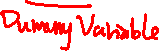 Dummy Variable